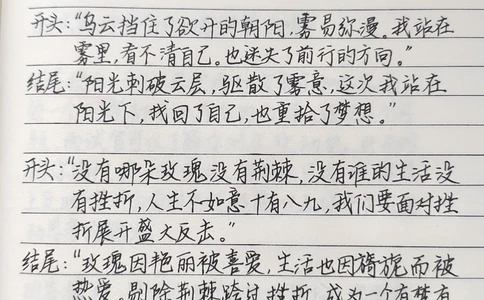 开头:“乌云挡住了欲升的朝阳,雾易弥漫。我站在
雾里,看不清自己。也迷失了前行的方向。”
结尾:“阳光刺破云层,驱散了雾意,这次我站在
阳光下,找回了自己,也重拾了梦想。”
开头:“没有哪朵玫瑰没有荆棘,没有谁的生活没
有挫折,人生不如意十有八九,我们要面对挫
折展开盛大反击。”
结尾:“玫瑰因艳丽被喜爱,生活也因旖旎而被
热爱。剔除荆棘跨过挫折,成为一个有梦有